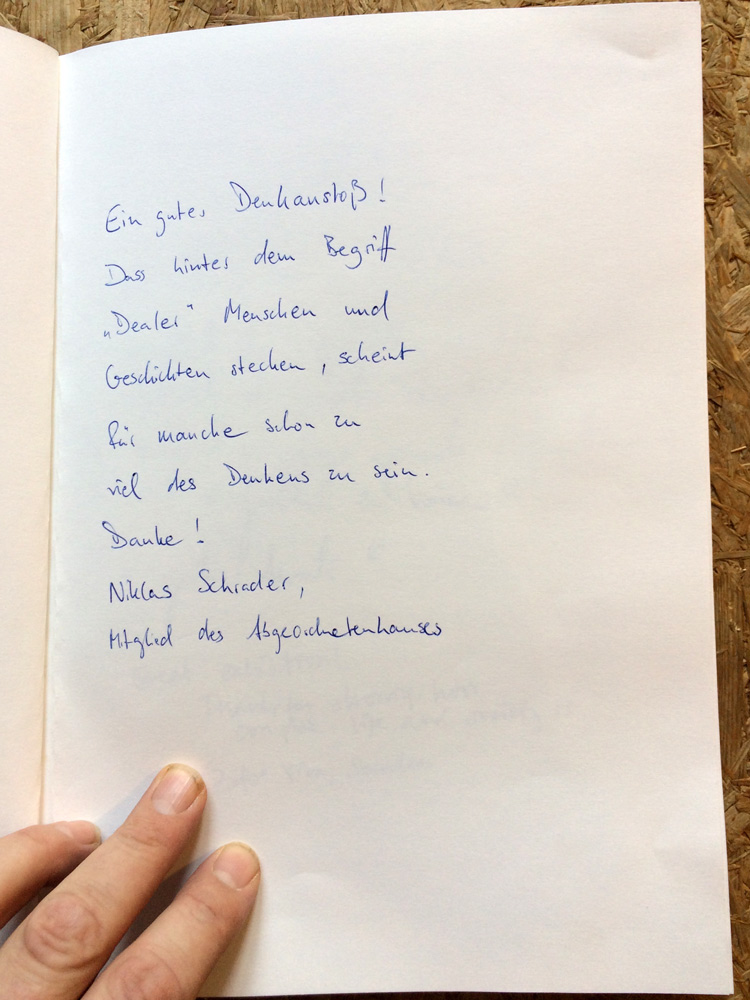 Ein guter Denkanstoß!
Dass hinter dem Begriff
„Dealer“ Menschen und
Geschichten stecken, scheint
für manche schon zu
viel des Denkens zu sein.
Danke!
Niklas Schrader,
Mitglied des Abgeordnetenhauses